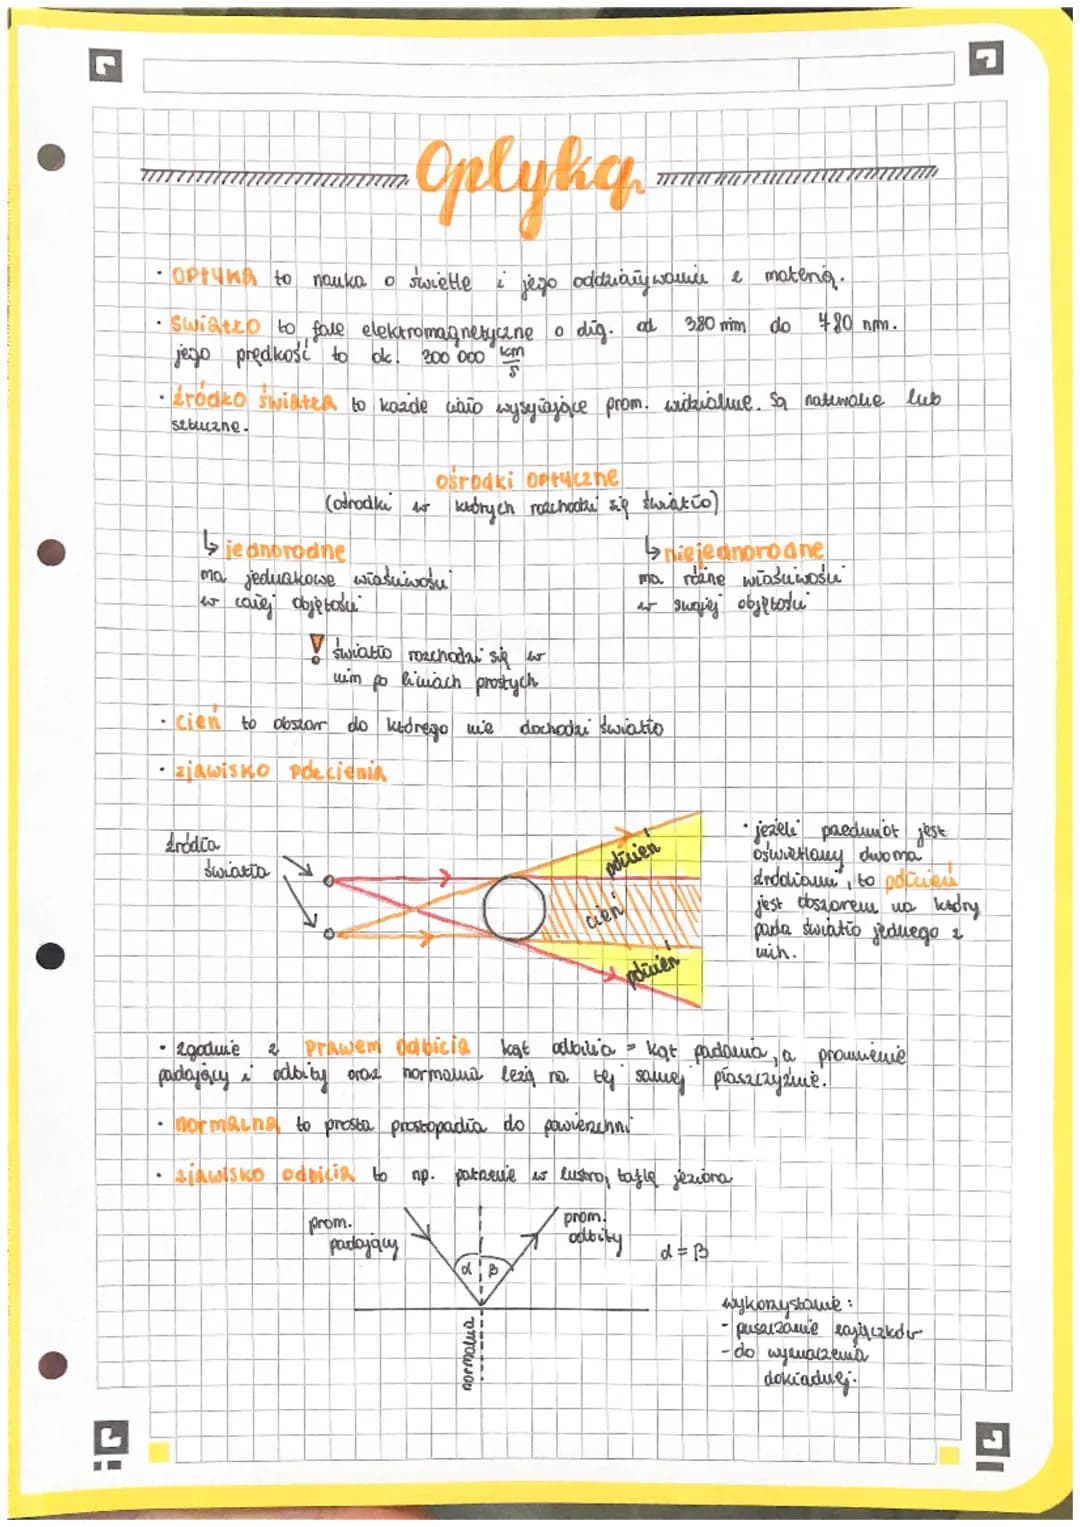 Optyka
· OPTYKA to nauka o świetle i jego oddziaływaniu z materią.
· Światło to fale elektromagnetyczne o dłg. od 380 nm do 780 nm.
jego prędkość to ok. 300 000 km/s
· źródło światła to każde ciało wysyłające prom. widzialne. Są naturalne lub
sztuczne.
ośrodki optyczne
(ośrodki w których rozchodzi się światło)
↳ jednorodne
ma jednakowe właściwości
w całej objętości
↳ niejednorodne
ma różne właściwości
w swojej objętości
! światło rozchodzi się w
nim po liniach prostych
· cień to obszar do którego nie dochodzi światło
· zjawisko półcienia
źródła
światła
półcień
cień
półcień
· jeżeli przedmiot jest
oświetlony dwoma
źródłami, to półcień
jest obszarem na który
pada światło jednego z
nich.
· zgodnie z prawem odbicia kąt odbicia = kąt padania, a promienie
padający i odbity oraz normalna leżą na tej samej płaszczyźnie.
· normalna to prosta prostopadła do powierzchni
· zjawisko odbicia to np. patrzenie w lustro, taflę jeziora
prom.
padający
prom.
odbity
α β
α = β
normalna
wykorzystanie:
- puszczanie zajączków
- do wyznaczenia
dokładnej.